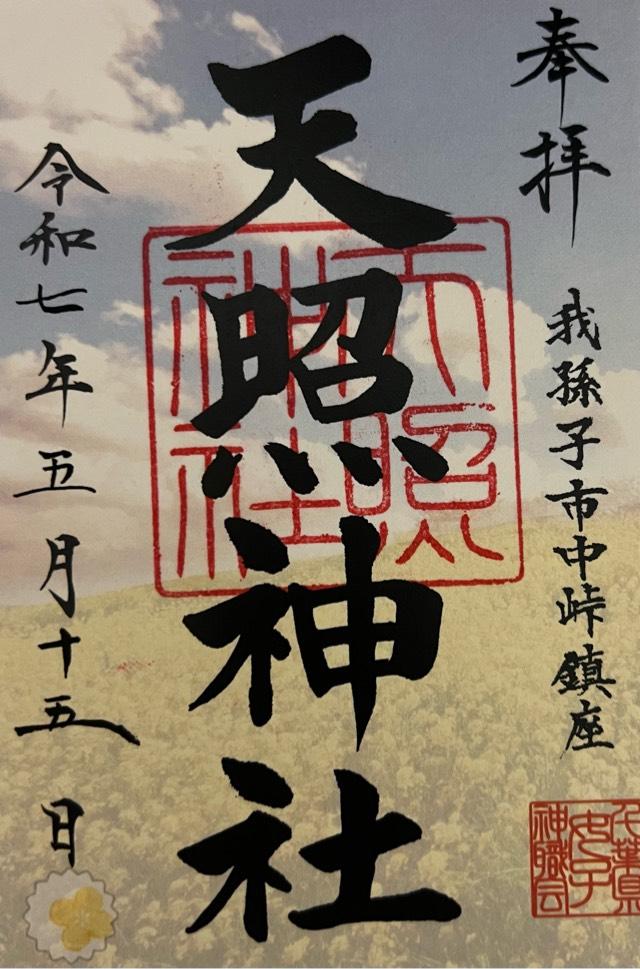 奉拝
我孫子市中峠鎮座
天照神社
天照
神社
令和七年五月十五日
千葉県
女子
神職会